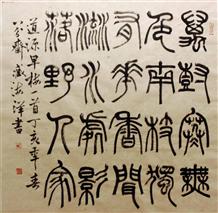 萬樹寒無
色南枝獨
有華香聞
流水處影
落野人家
道源早梅一首丁亥季春
齋 洋書